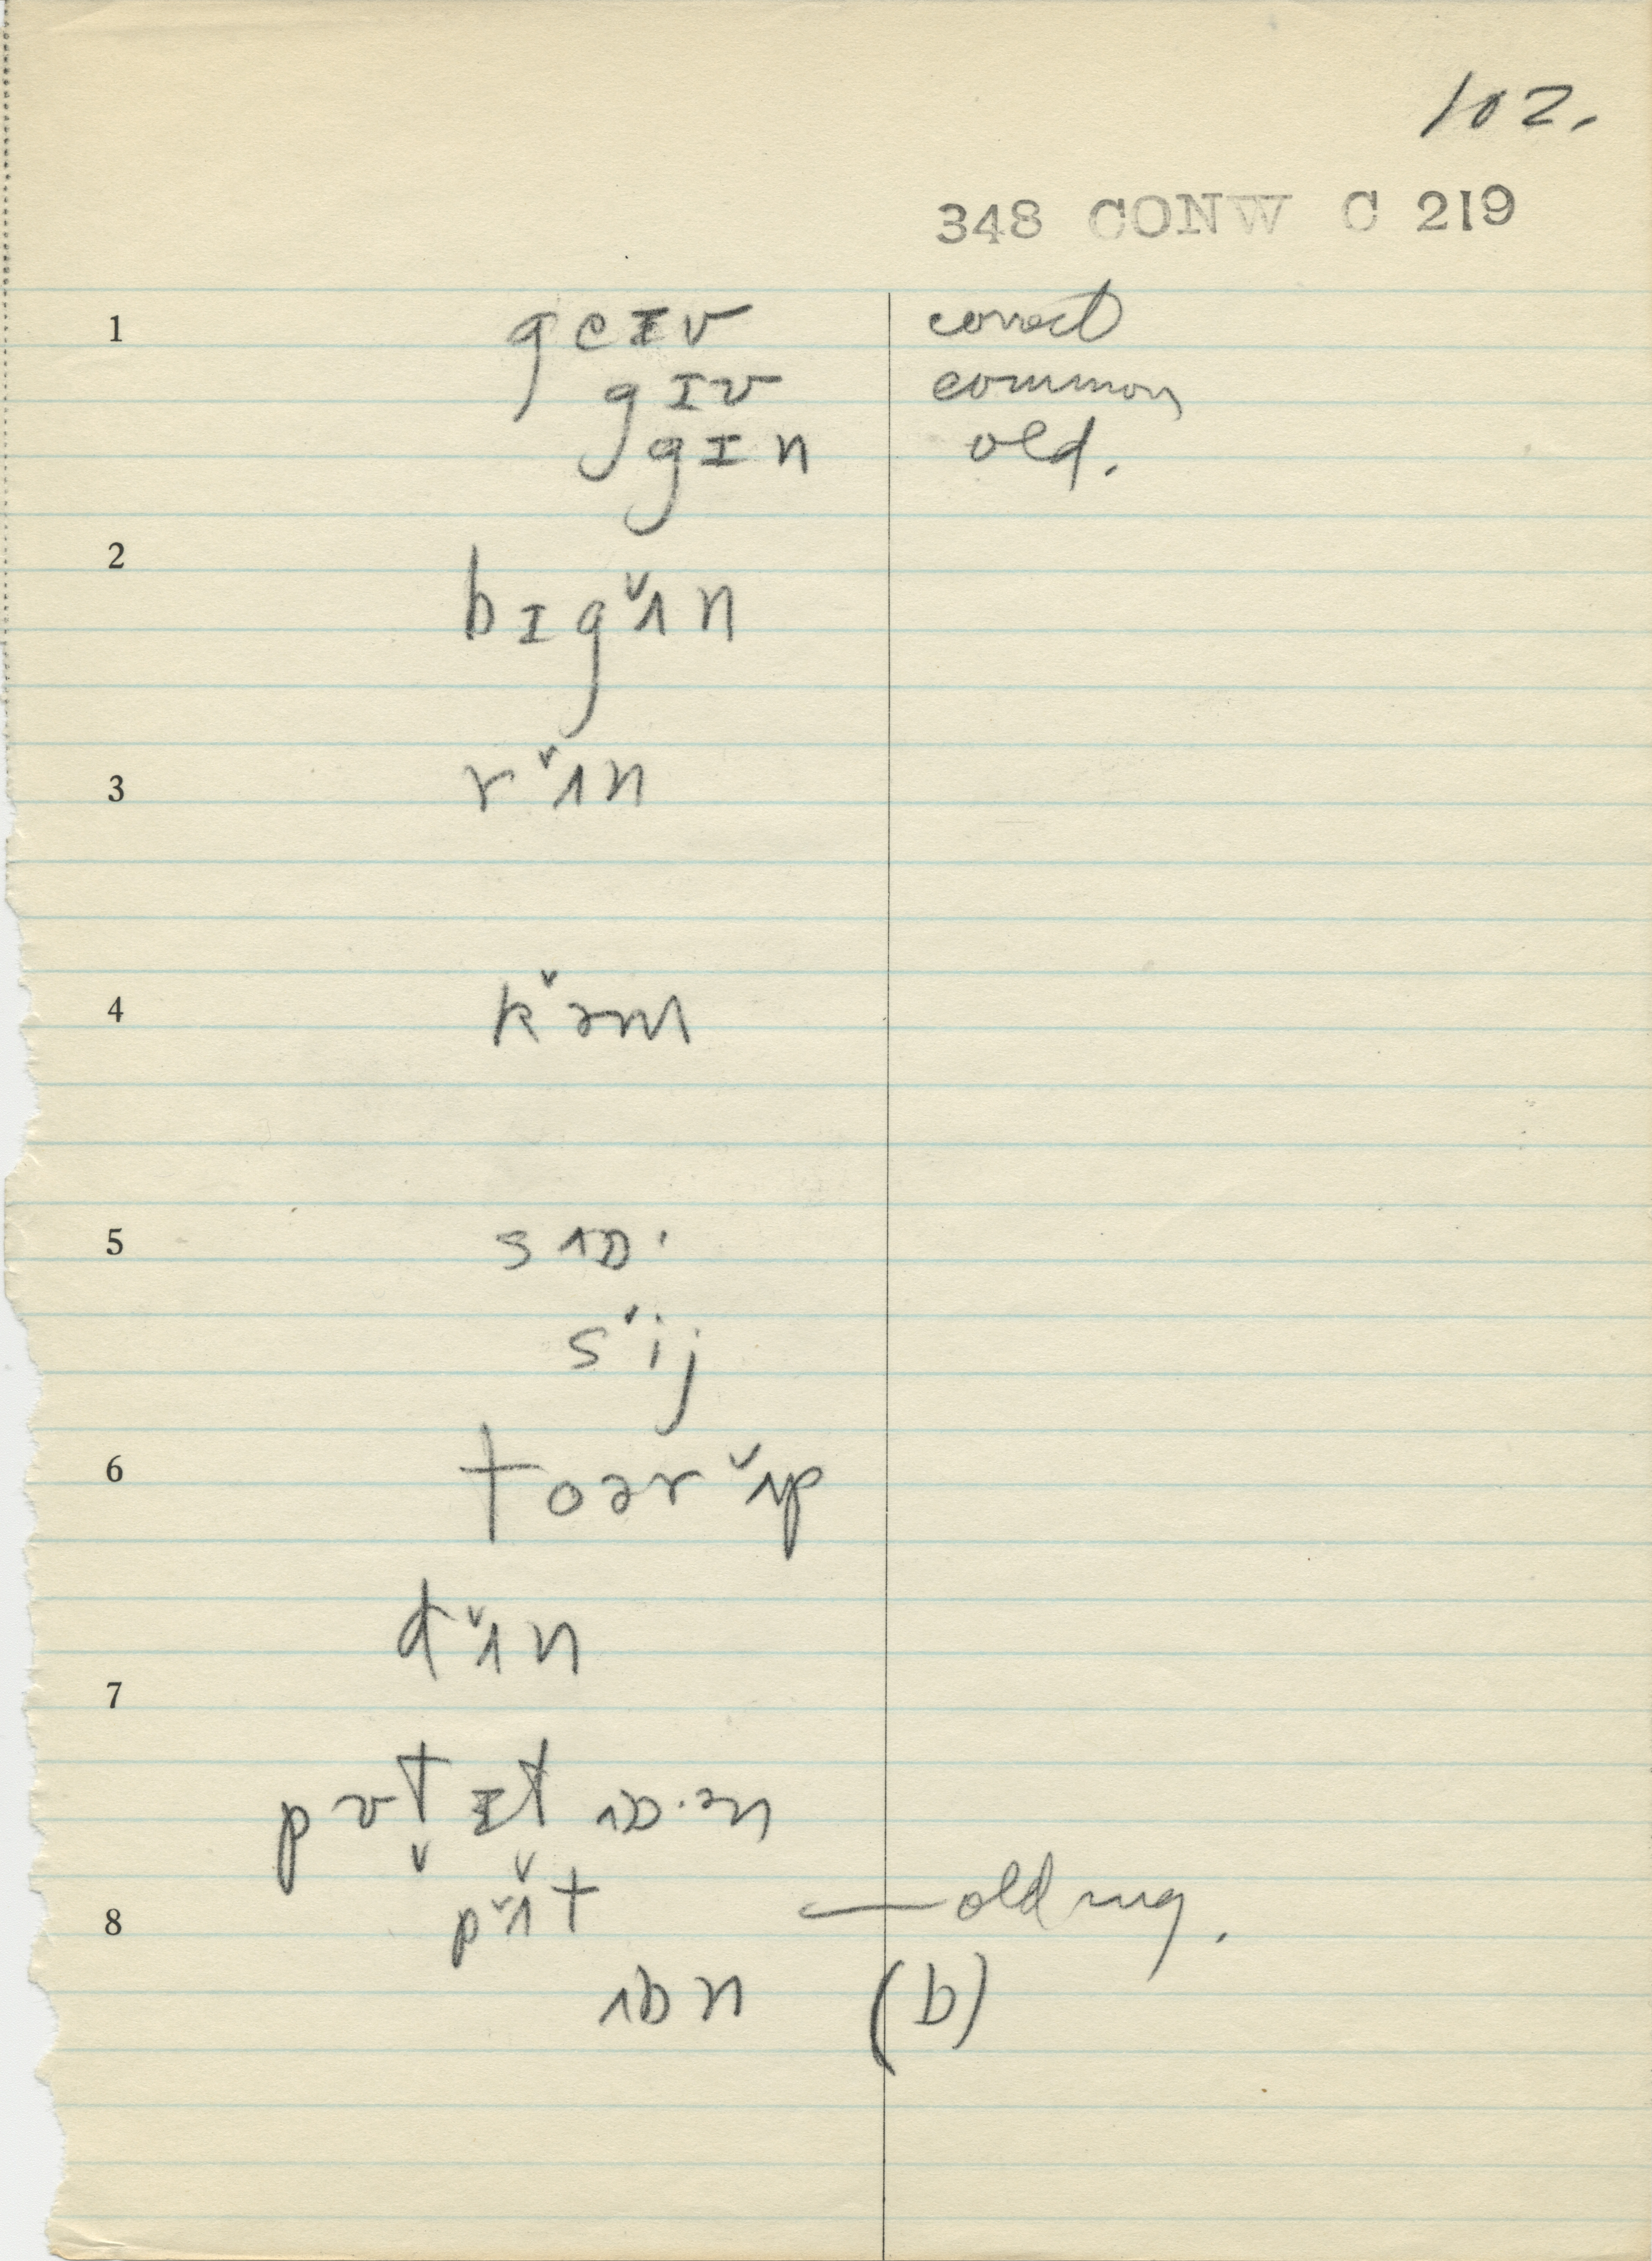 102.
348 CONW C 219
1 geɪv correct
gɪv common
gɪn old.
2
bɪgˇʌn
3 rˇʌn
4 kˇəm
5 s ɒ·
sˇij
6 toərˇʌp
dˇʌn
7
pʊtɪt ɒ·ən
8 pˇʌt — old
ɒn (b)